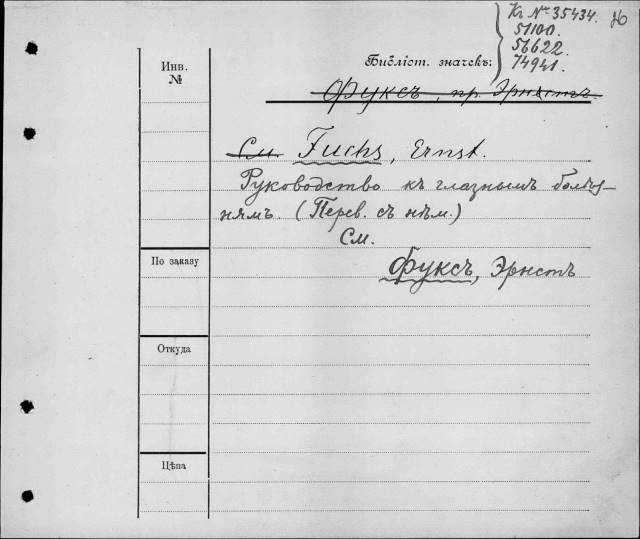 Kr № 35434.
51100.
56622.
74941.
Инв.
№
Библіот. значекъ:
Фуксъ, пр. Эрнстъ.
См. Fuchs, Ernst.
Руководство къ глазнымъ болѣз-
нямъ. (Перев. съ нѣм.)
См.
Фуксъ, Эрнстъ
По заказу
Откуда
Цѣна